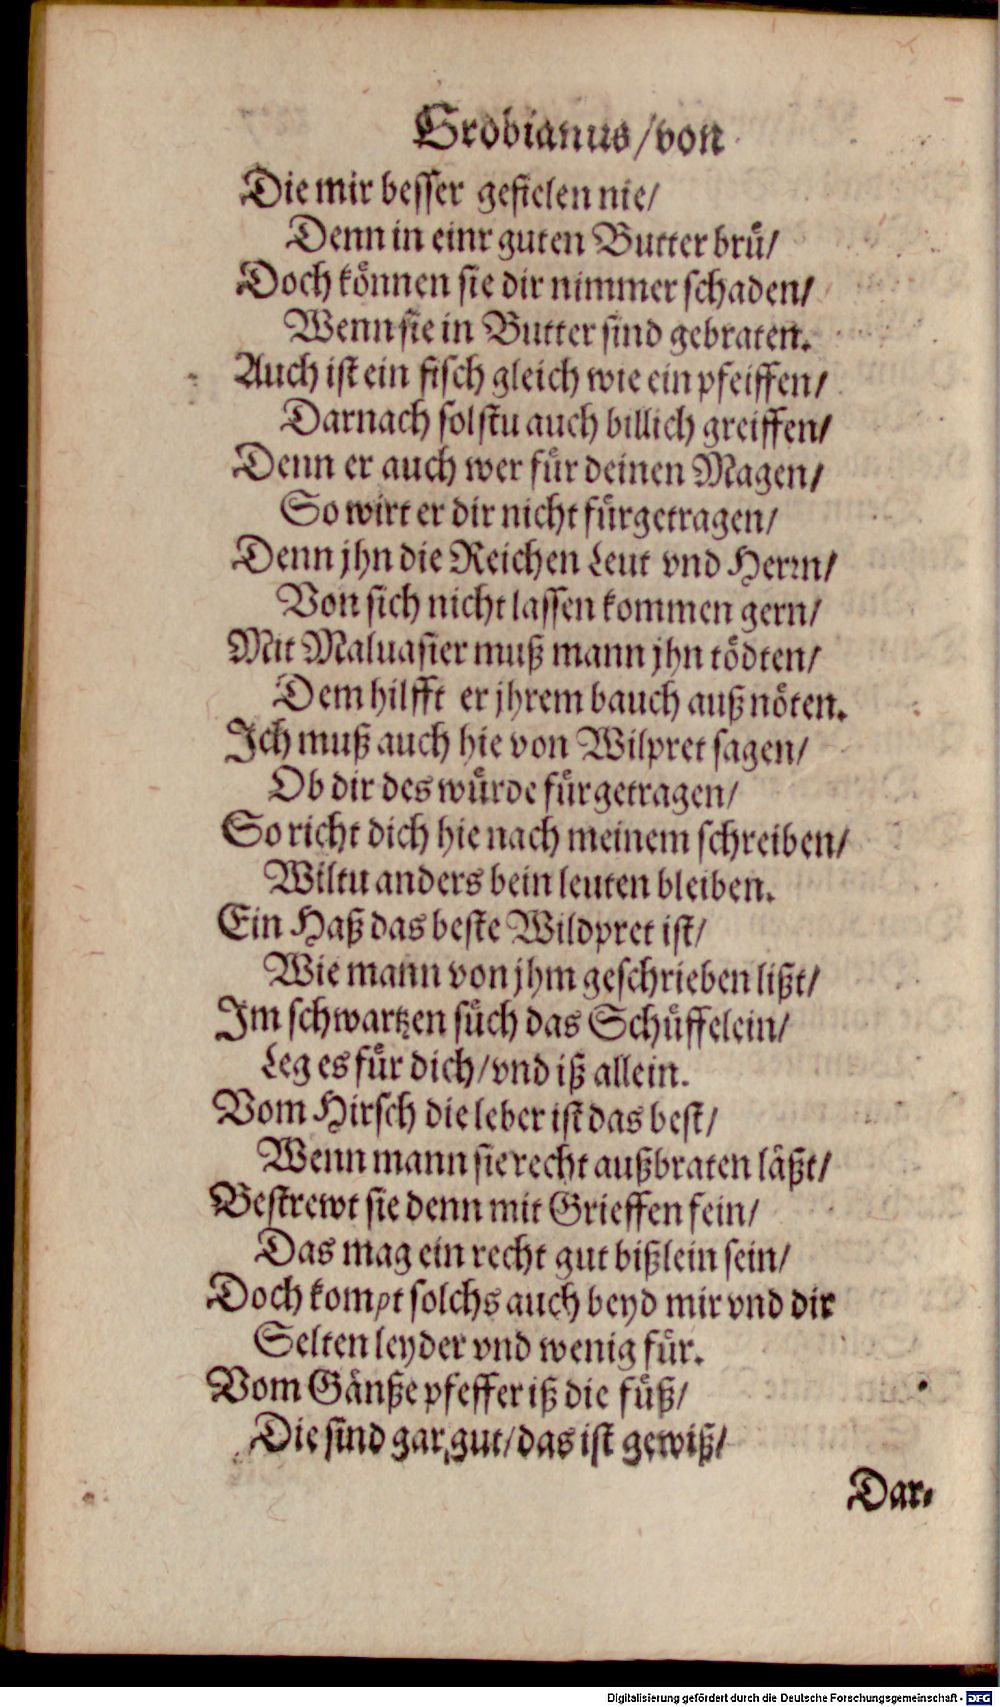 Grobianus/von
Die mir besser gefielen nie/
Denn in einr guten Butter brů/
Doch können sie dir nimmer schaden/
Wenn sie in Butter sind gebraten.
Auch ist ein fisch gleich wie ein pfeiffen/
Darnach solstu auch billich greiffen/
Denn er auch wer für deinen Magen/
So wirt er dir nicht fürgetragen/
Denn jhn die Reichen Leut vnd Herrn/
Von sich nicht lassen kommen gern/
Mit Maluasier muß mann jhn tödten/
Dem hilfft er jhrem bauch auß nöten.
Ich muß auch hie von Wilpret sagen/
Ob dir des würde fürgetragen/
So richt dich hie nach meinem schreiben/
Wiltu anders bein leuten bleiben.
Ein Haß das beste Wildpret ist/
Wie mann von jhm geschrieben lißt/
Im schwartzen süch das Schüffelein/
Leg es für dich/vnd iß allein.
Vom Hirsch die leber ist das best/
Wenn mann sie recht außbraten läßt/
Bestrewt sie denn mit Grieffen fein/
Das mag ein recht gut bißlein sein/
Doch kompt solchs auch beyd mir vnd dir
Selten leyder vnd wenig für.
Vom Gänße pfeffer iß die füß/
Die sind gar gut/das ist gewiß/
Dar-
Digitalisierung gefördert durch die Deutsche Forschungsgemeinschaft - DFG